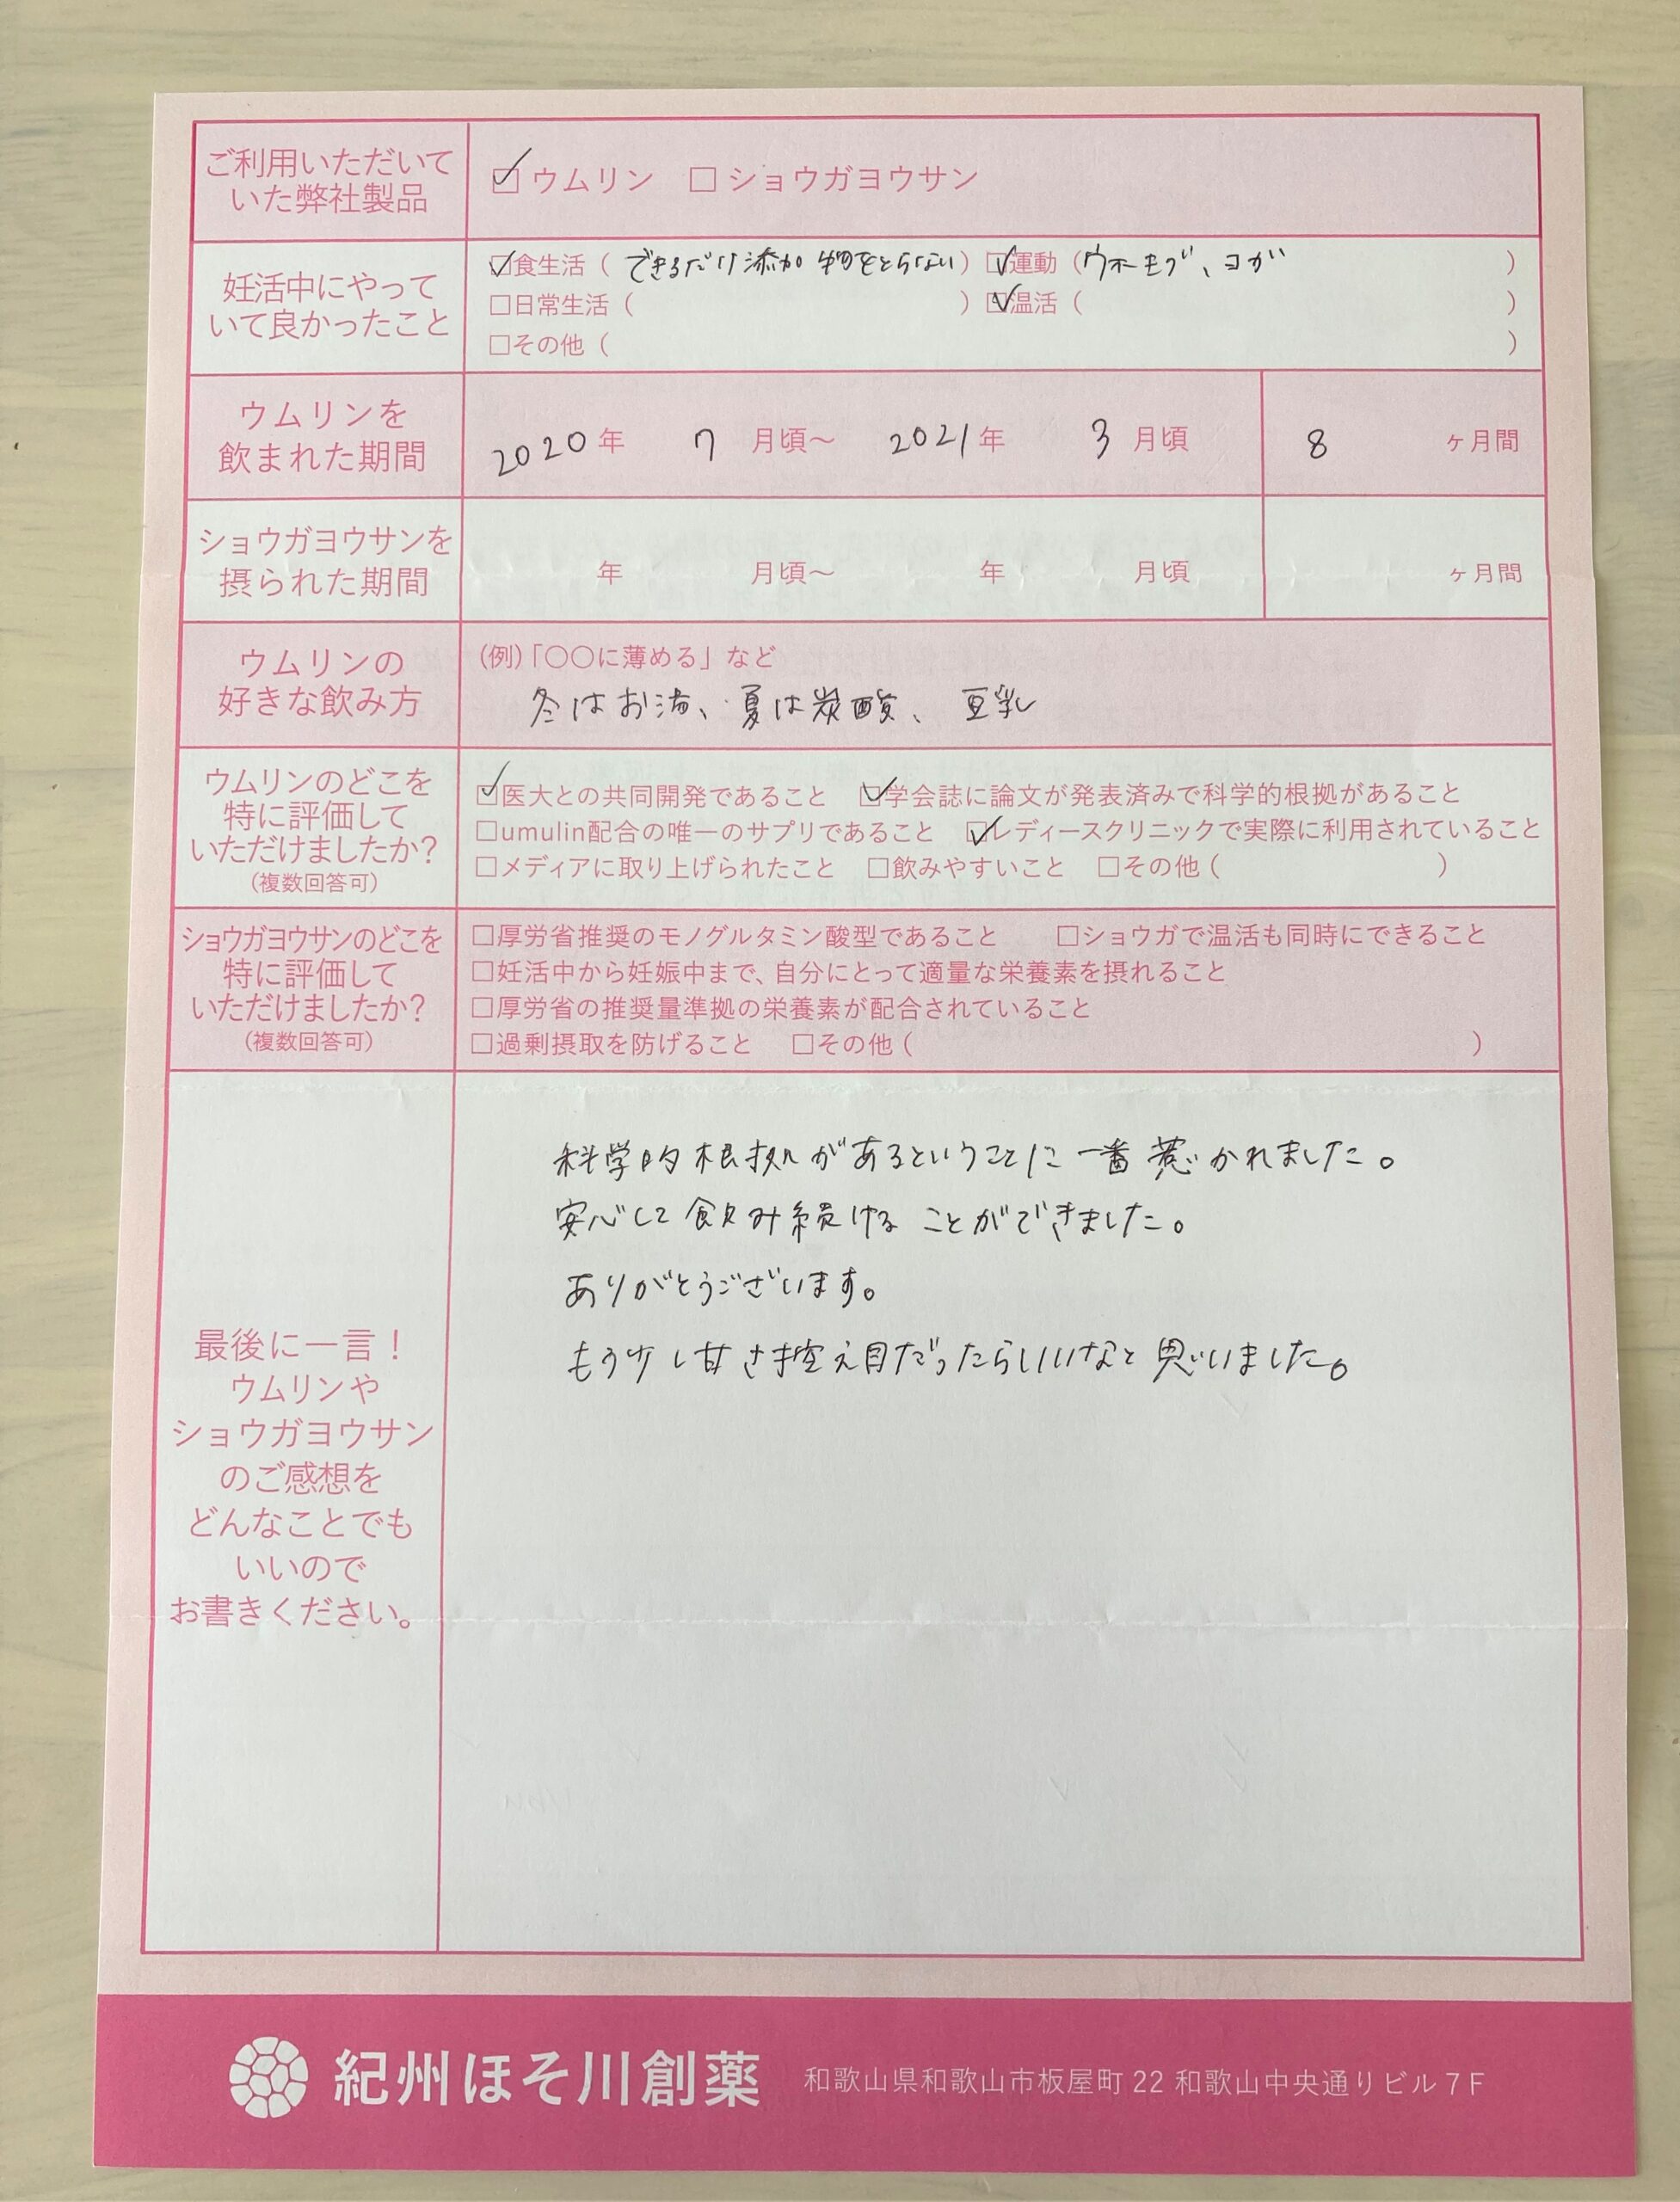 ご利用いただいて
いた弊社製品
☑ウムリン □ショウガヨウサン
妊活中にやって
いて良かったこと
☑食生活（できるだけ添加物をとらない）☑運動（ウオーキング、ヨガ）
□日常生活（ ）☑温活（ ）
□その他（ ）
ウムリンを
飲まれた期間
2020年 7月頃～ 2021年 3月頃 8ヶ月間
ショウガヨウサンを
摂られた期間
年 月頃～ 年 月頃 ヶ月間
ウムリンの
好きな飲み方
(例)「○○に薄める」など
冬はお湯、夏は炭酸、豆乳
ウムリンのどこを
特に評価して
いただけましたか?
(複数回答可)
☑医大との共同開発であること ☑学会誌に論文が発表済みで科学的根拠があること
□umulin配合の唯一のサプリであること ☑レディースクリニックで実際に利用されていること
□メディアに取り上げられたこと □飲みやすいこと □その他（ ）
ショウガヨウサンのどこを
特に評価して
いただけましたか?
(複数回答可)
□厚労省推奨のモノグルタミン酸型であること □ショウガで温活も同時にできること
□妊活中から妊娠中まで、自分にとって適量な栄養素を摂れること
□厚労省の推奨量準拠の栄養素が配合されていること
□過剰摂取を防げること □その他（ ）
最後に一言！
ウムリンや
ショウガヨウサン
のご感想を
どんなことでも
いいので
お書きください。
科学的根拠があるということに一番惹かれました。
安心して飲み続けることができました。
ありがとうございます。
もう少し甘さ控え目だったらいいなと思いました。
紀州ほそ川創薬 和歌山県和歌山市板屋町 22 和歌山中央通りビル 7 F